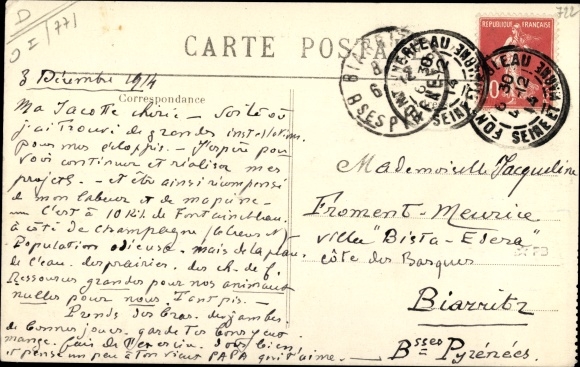 722
D
O I/771
RÉPUBLIQUE FRANÇAISE
CARTE POSTALE
3 Décembre 1914
Correspondance
Ma Jacotte chérie
j'ai trouvé de grandes installations
pour mes éclopés. J'espère pouvoir
vous continuer et réaliser mes
projets. et être ainsi récompensé
de mon labeur et de ma peine
C'est à 10 K. de Fontainebleau.
à côté de Champagne
Population odieuse. mais de la place
de l'eau. des prairies. des ch. de f.
Ressources grandes pour nos animaux
nulles pour nous. Tant pis.
Prends des bras. des jambes.
de bonnes joues. garde tes bons yeux
mange. fais de l'exercice. dors bien
et pense un peu à ton vieux PAPA qui t'aime.
Mademoiselle Jacqueline
Froment-Meurice
villa "Bista-Eder"
côte des Basques
Biarritz
Bsses Pyrénées.
BIARRITZ
BSES PYR
SEINE ET MARNE